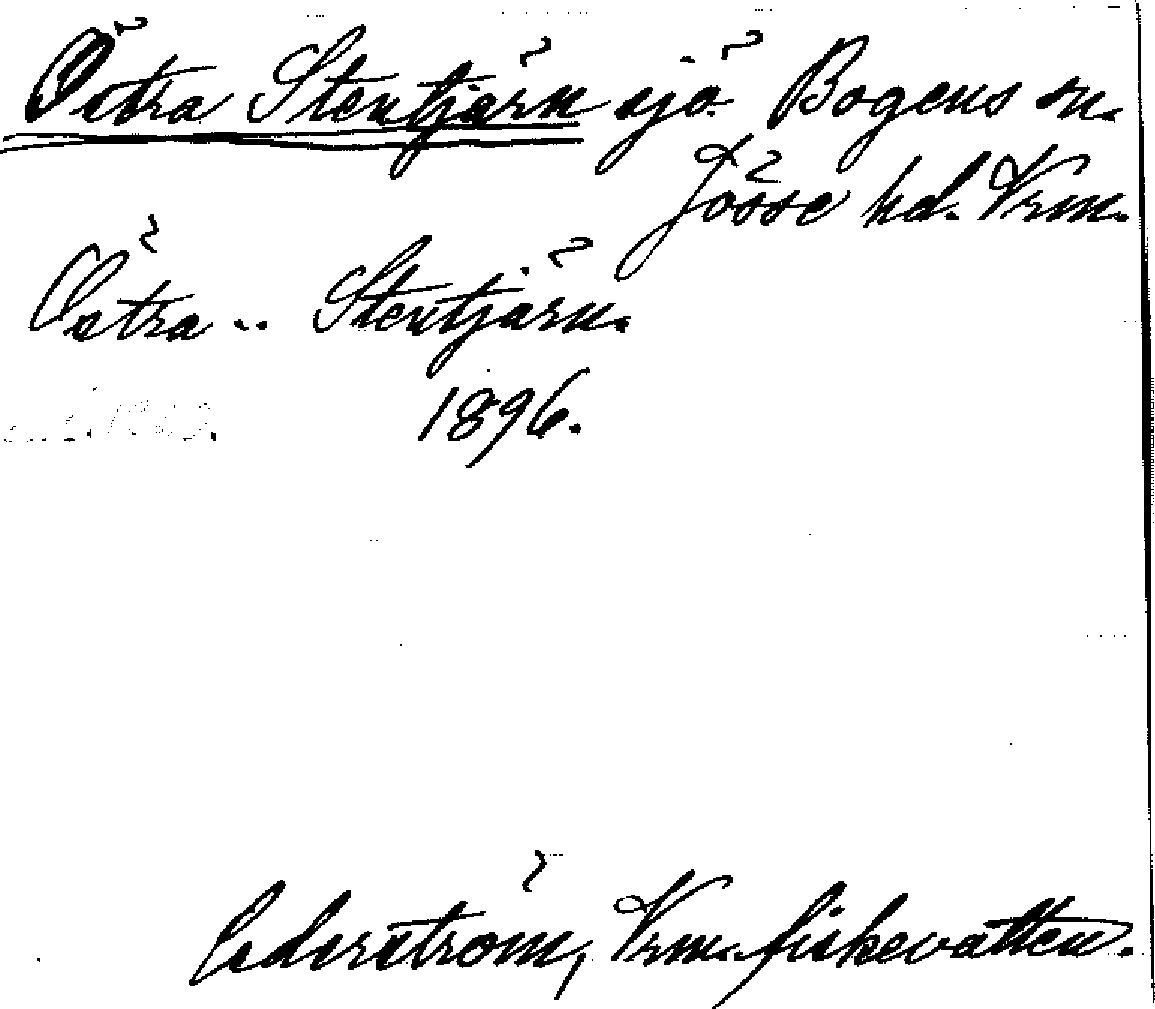 Östra Stentjärn sjö Bogens sn.
Jösse hd. Vrm.
Östra .. Stentjärn.
1896.
Cederström, Vrm. fiskevatten.